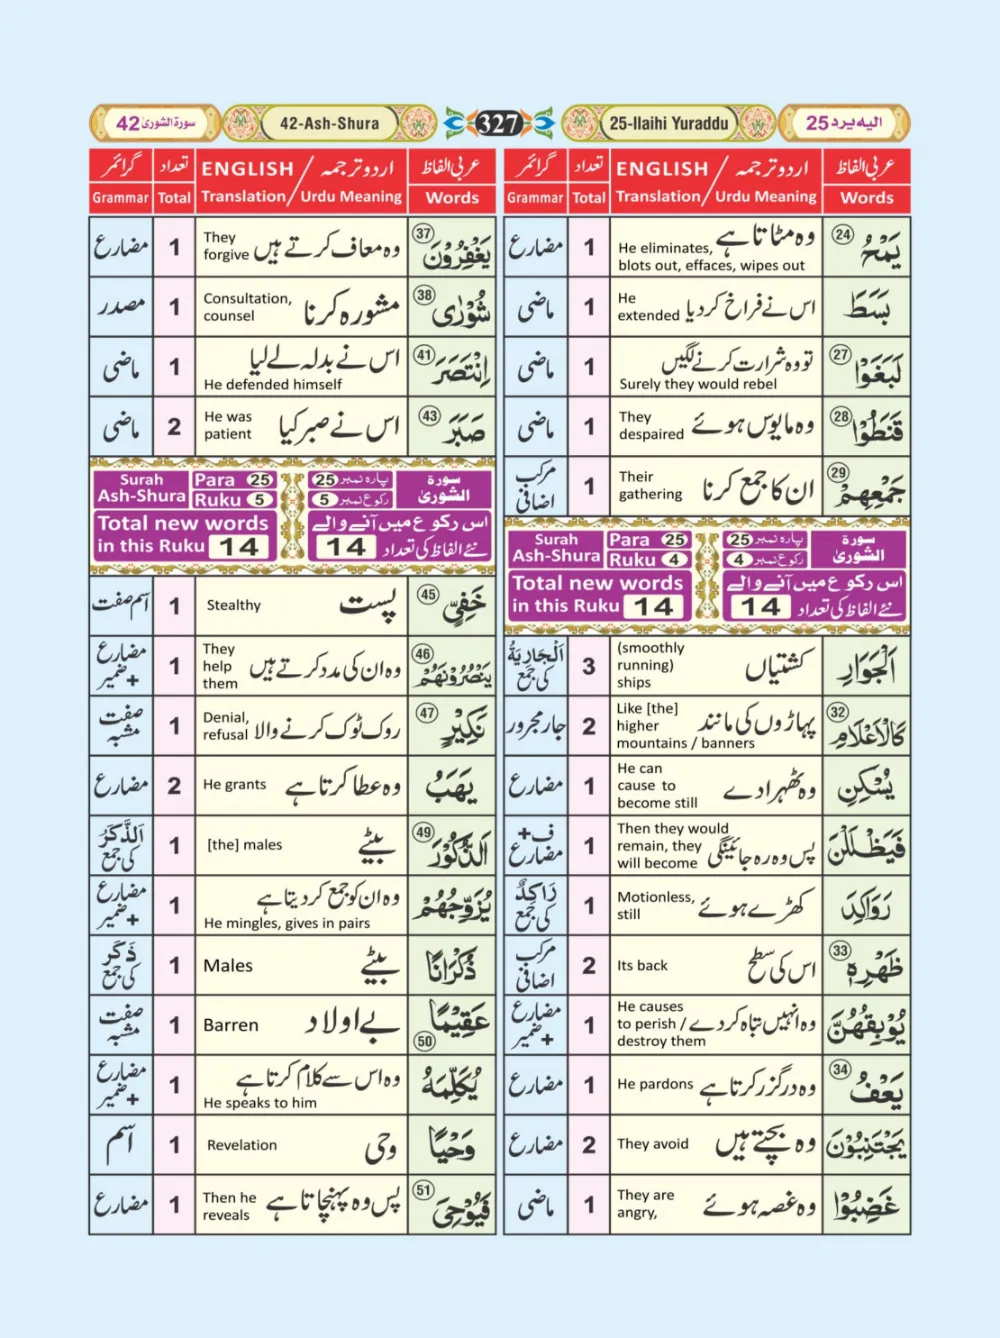 سورة الشورىٰ 42
42-Ash-Shura
327
25-Ilaihi Yuraddu
الیه یرد 25
عربی الفاظ اردو ترجمہ / ENGLISH تعداد گرائمر
Words Urdu Meaning / Translation Total Grammar
24 یَمْحُ وہ مٹاتا ہے He eliminates, blots out, effaces, wipes out 1 مضارع
بَسَطَ اس نے فراخ کردیا He extended 1 ماضی
27 لَبَغَوْا تو وہ شرارت کرنے لگیں Surely they would rebel 1 ماضی
28 قَنَطُوْا وہ مایوس ہوئے They despaired 1 ماضی
29 جَمْعِهِمْ ان کا جمع کرنا Their gathering 1 مرکب اضافی
سورۃ الشوریٰ پارہ نمبر 25 Para 25 Surah Ash-Shura
رکوع نمبر 4 Ruku 4
اس رکوع میں آنے والے Total new words
نئے الفاظ کی تعداد 14 in this Ruku 14
اَلْجَوَارِ کشتیاں (smoothly running) ships 3 اَلْجَارِيَةُ کی جمع
32 كَالْاَعْلَامِ پہاڑوں کی مانند Like [the] higher mountains / banners 2 جار مجرور
يُسْكِنِ وہ ٹھہرادے He can cause to become still 1 مضارع
فَيَظْلَلْنَ پس وہ رہ جائینگی Then they would remain, they will become 1 ف+ مضارع
رَوَاكِدَ کھڑے ہوئے Motionless, still 1 رَاكِدٌ کی جمع
33 ظَهْرِهٖ اس کی سطح Its back 2 مرکب اضافی
يُوْبِقْهُنَّ وہ انہیں تباہ کردے He causes to perish / destroy them 1 مضارع +ضمیر
34 يَعْفُ وہ درگزر کرتا ہے He pardons 1 مضارع
يَجْتَنِبُوْنَ وہ بچتے ہیں They avoid 2 مضارع
غَضِبُوْا وہ غصہ ہوئے They are angry, 1 ماضی
عربی الفاظ اردو ترجمہ / ENGLISH تعداد گرائمر
Words Urdu Meaning / Translation Total Grammar
37 يَغْفِرُوْنَ وہ معاف کرتے ہیں They forgive 1 مضارع
38 شُوْرٰى مشورہ کرنا Consultation, counsel 1 مصدر
41 اِنْتَصَرَ اس نے بدلہ لے لیا He defended himself 1 ماضی
43 صَبَرَ اس نے صبر کیا He was patient 2 ماضی
سورۃ الشوریٰ پارہ نمبر 25 Para 25 Surah Ash-Shura
رکوع نمبر 5 Ruku 5
اس رکوع میں آنے والے Total new words
نئے الفاظ کی تعداد 14 in this Ruku 14
45 خَفِيٍّ پست Stealthy 1 اسم صفت
46 يَنْصُرُوْنَهُمْ وہ ان کی مدد کرتے ہیں They help them 1 مضارع +ضمیر
47 نَكِيْرٍ روک ٹوک کرنے والا Denial, refusal 1 صفت مشبہ
يَهَبُ وہ عطا کرتا ہے He grants 2 مضارع
49 اَلذُّكُوْرَ بیٹے [the] males 1 اَلذَّكَرُ کی جمع
يُزَوِّجُهُمْ وہ ان کو جمع کردیتا ہے He mingles, gives in pairs 1 مضارع +ضمیر
ذُكْرَانًا بیٹے Males 1 ذَكَر کی جمع
50 عَقِيْمًا بے اولاد Barren 1 صفت مشبہ
يُكَلِّمَهُ وہ اس سے کلام کرتا ہے He speaks to him 1 مضارع +ضمیر
وَحْيًا وحی Revelation 1 اسم
51 فَيُوْحِيَ پس وہ پہنچاتا ہے Then he reveals 1 مضارع